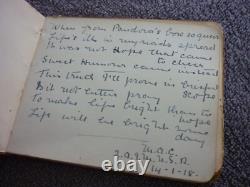 When from Pandora's box so queer
Life's ills in myriads spread
It was not Hope that came
to cheer
Sweet Humour came instead
This truth I'll prove in
Is it not better
to make life bright than to
hope
Life will be bright some
day
M.A.C.
14-1-18.